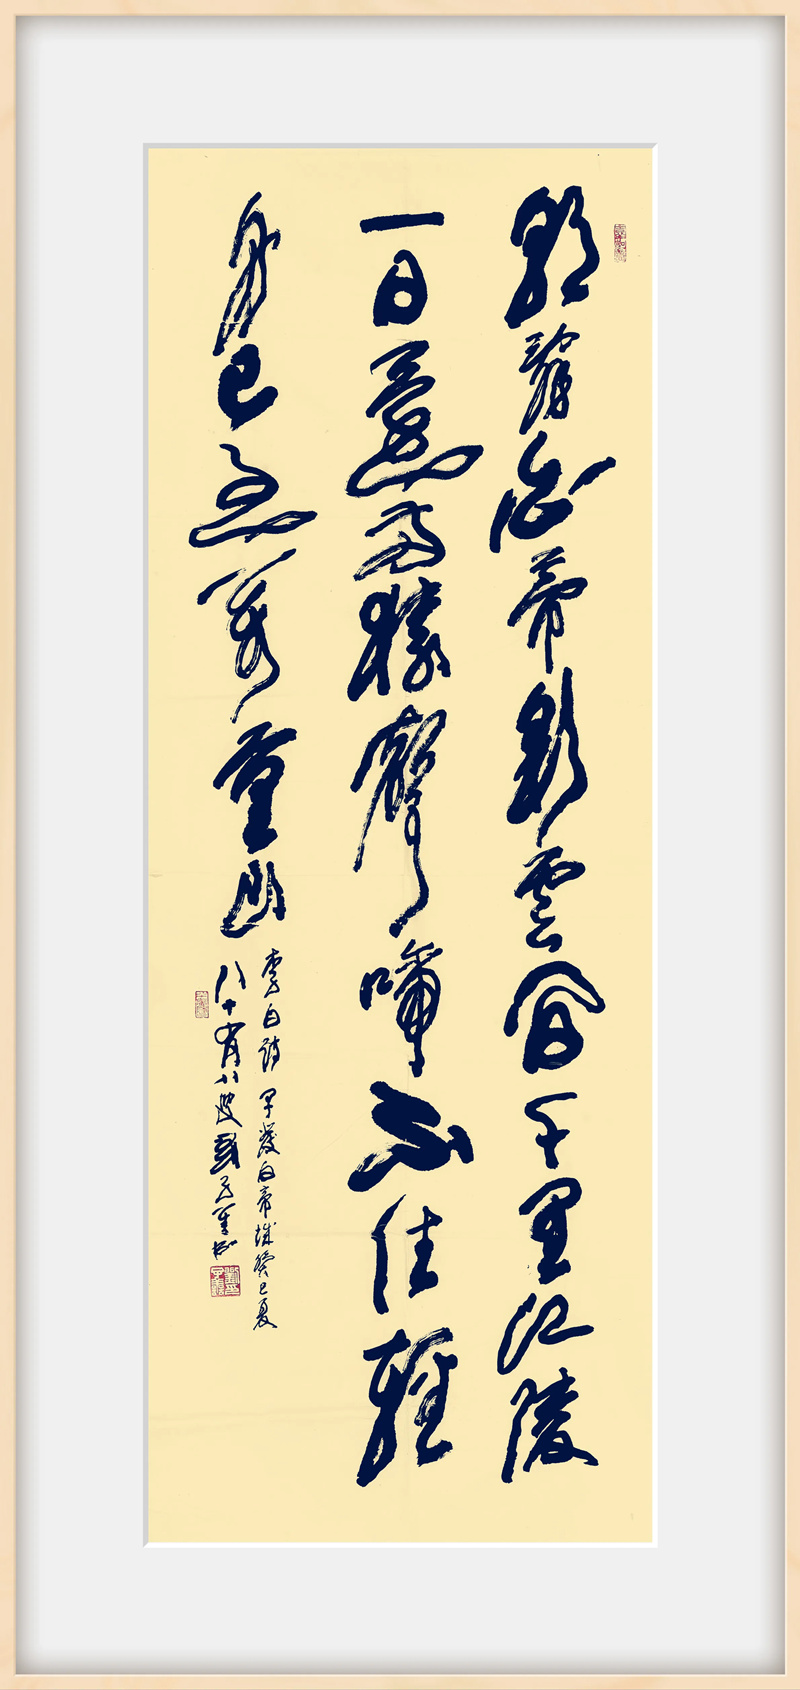 朝辭白帝彩雲間千里江陵
一日還兩猿聲啼不住輕
舟已過萬重山
李白詩 早發白帝城癸巳夏
八十有八叟劉